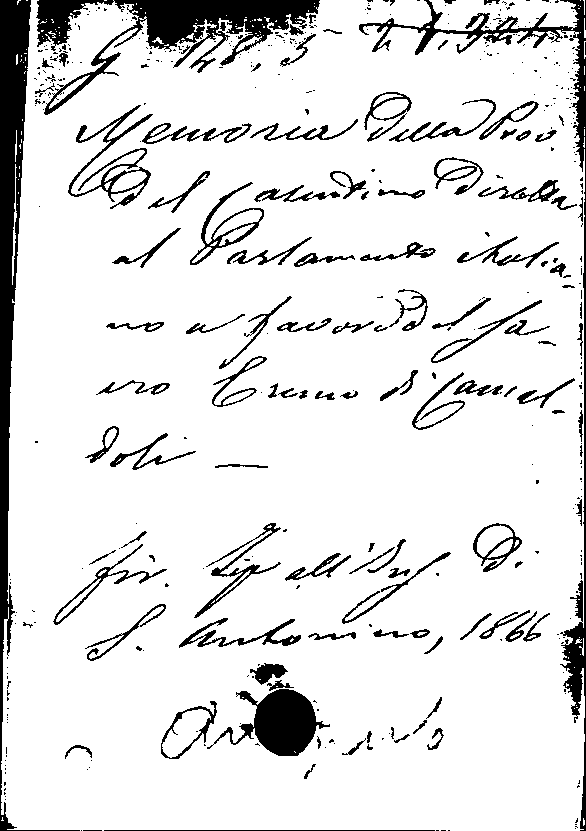 G. 128, 5
Memoria della Prov.
del Casentino diretta
al Parlamento italia-
no a favore del Sa-
cro Eremo di Camal-
doli —
Fir. Tip all'Insg. di
S. Antonino, 1866